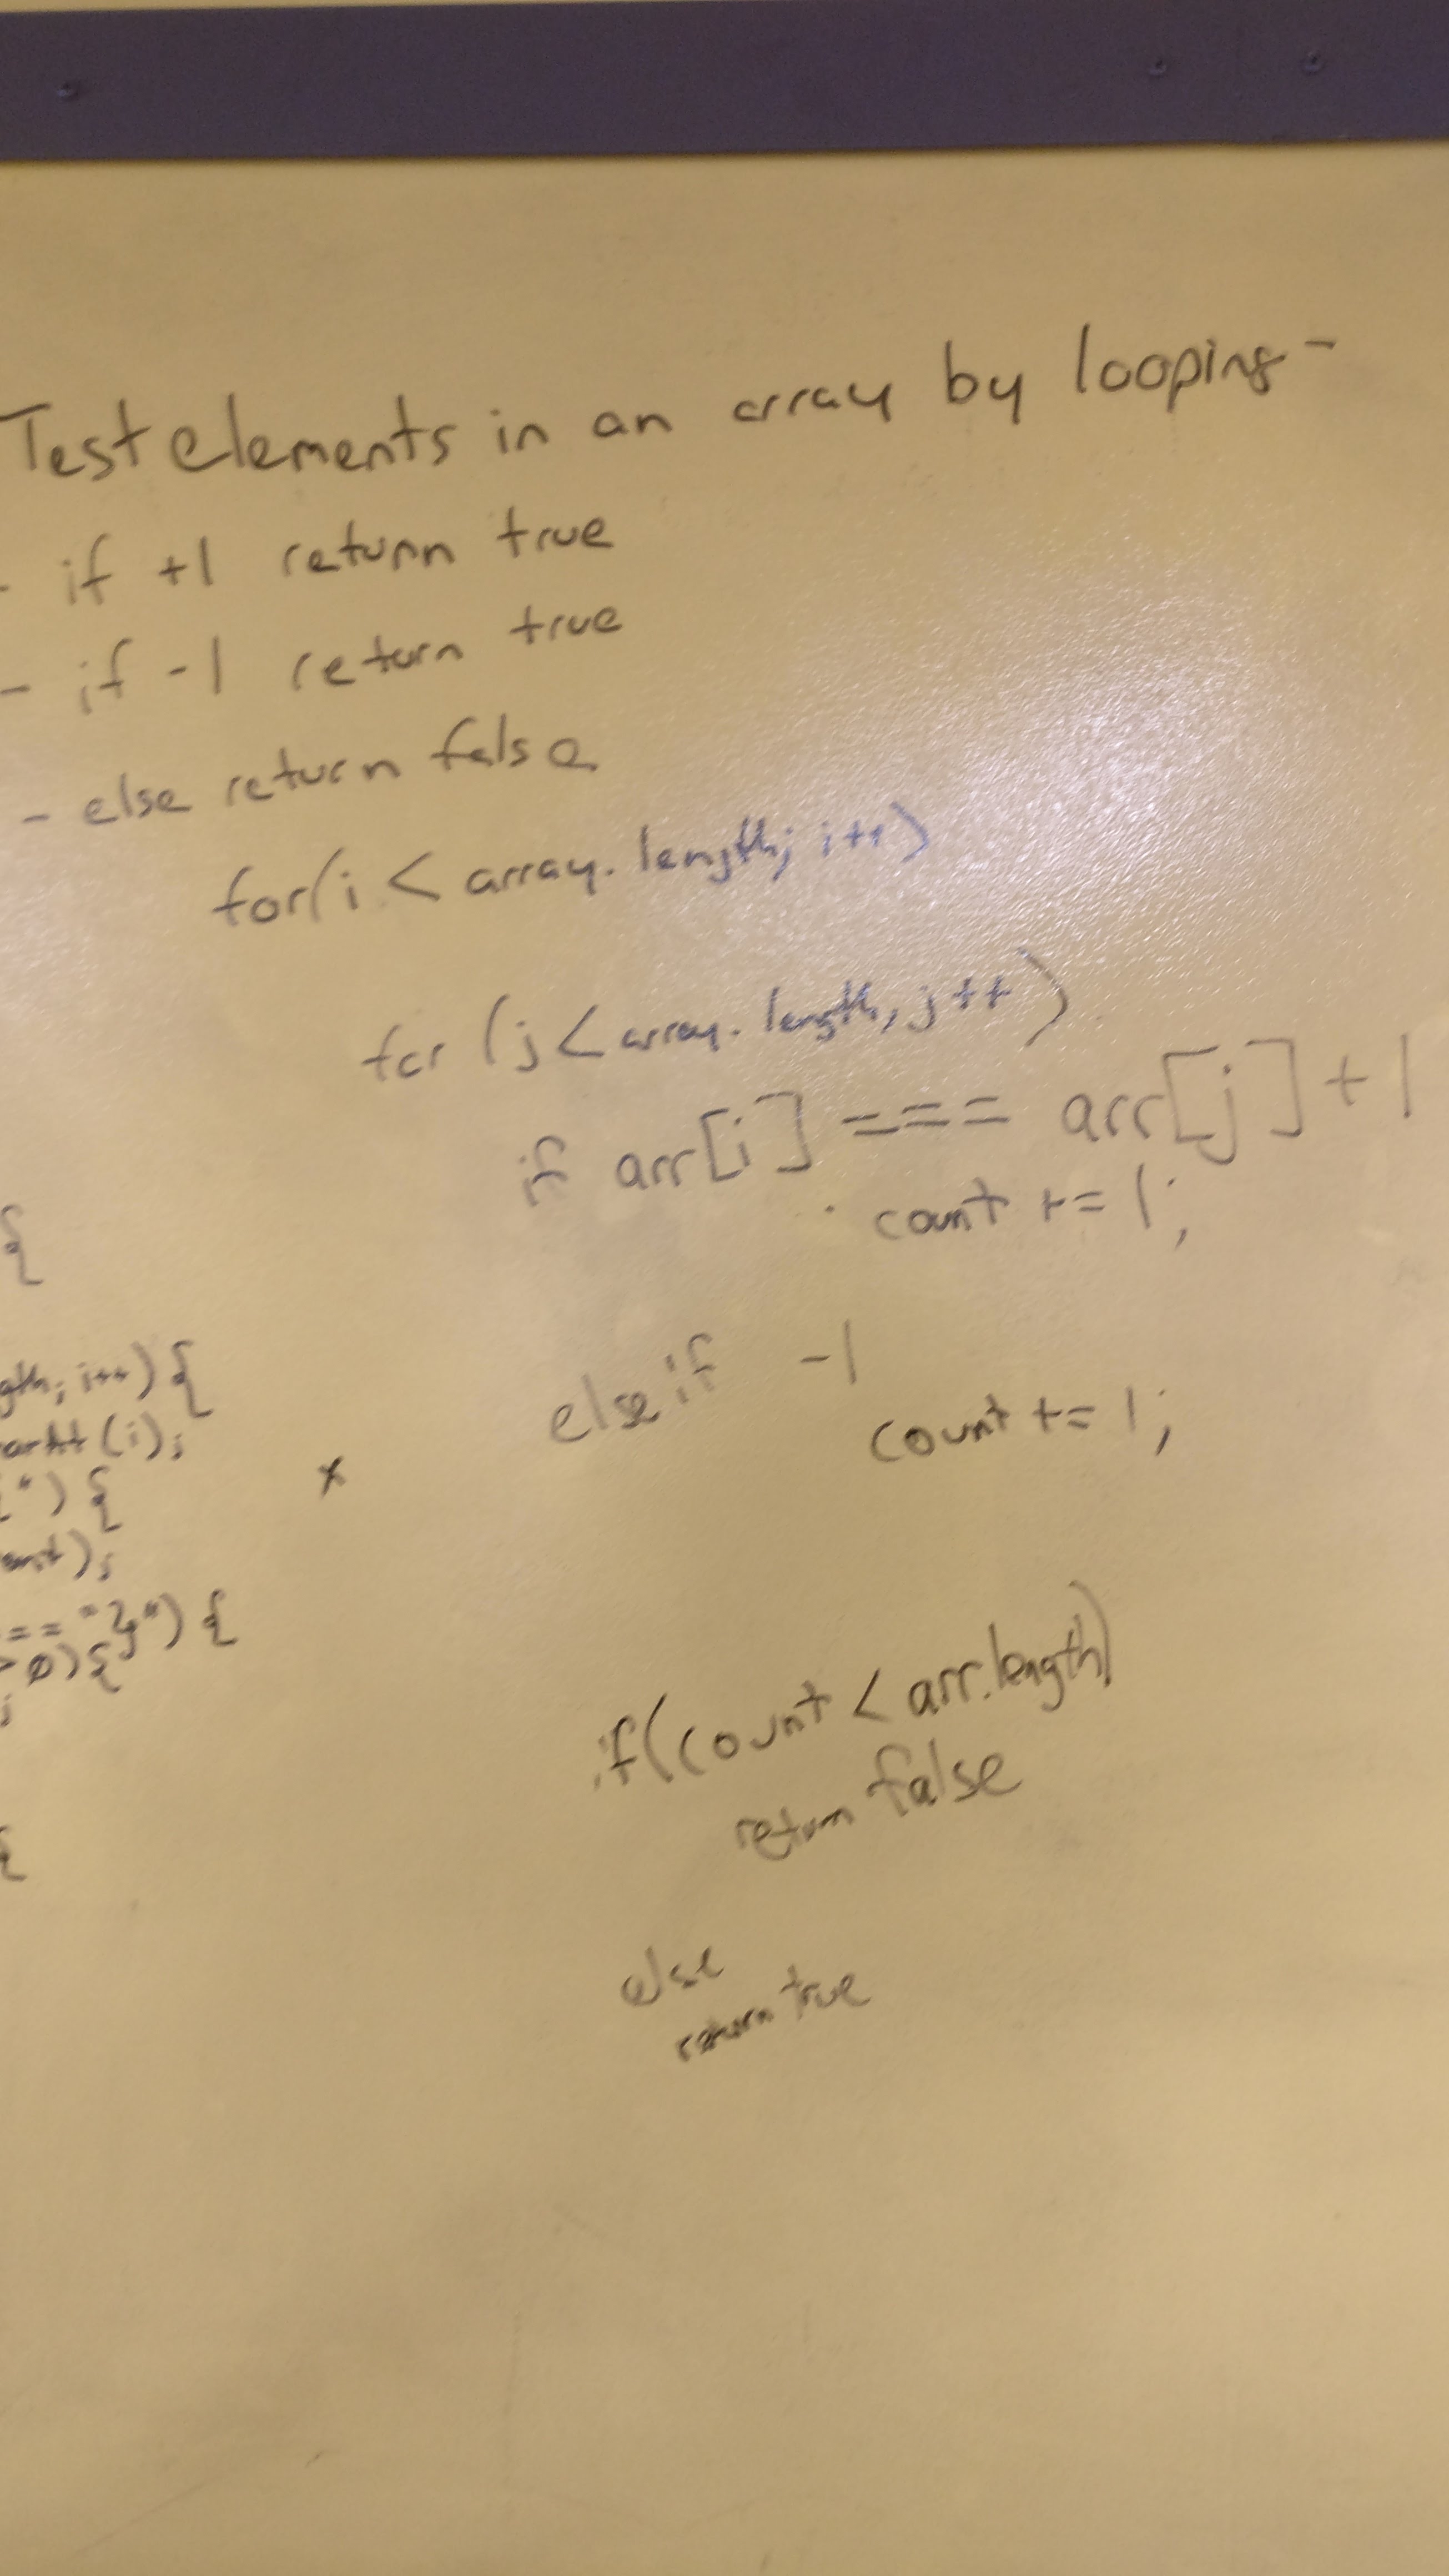 Test elements in an array by looping -
- if +1 return true
- if -1 return true
- else return false
for(i < array.length; i++)
for (j < array.length, j++)
if arr[i] === arr[j] + 1
count += 1;
else if -1
count += 1;
if(count < arr.length)
return false
else
return true
{
gth; i++) {
arAt (i);
") {
ent);
== "}") {
> 0) {
;
x
{